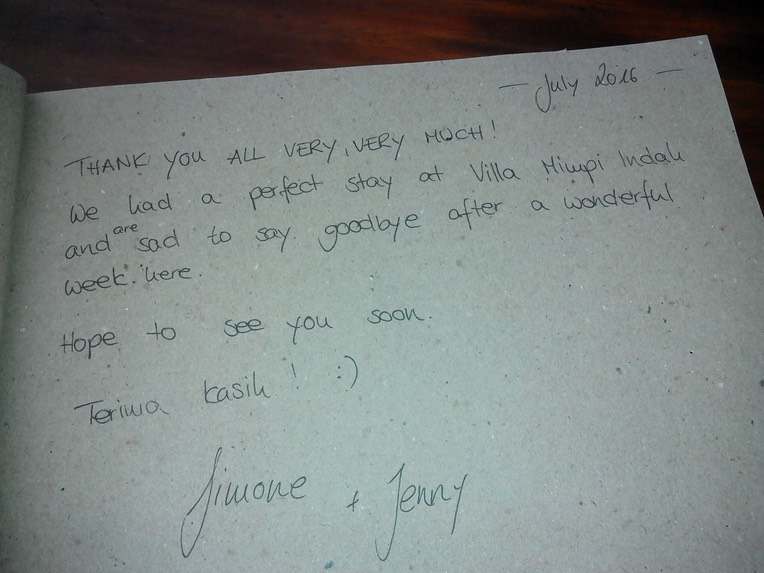 - July 2016 -
THANK YOU ALL VERY, VERY MUCH!
We had a perfect stay at Villa Mimpi Indah
and are sad to say goodbye after a wonderful
week here.
Hope to see you soon.
Terima kasih! :)
Simone + Jenny